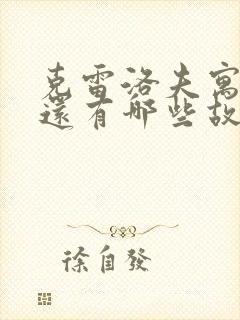 克雷洛夫寓
還有哪些故
徐自發